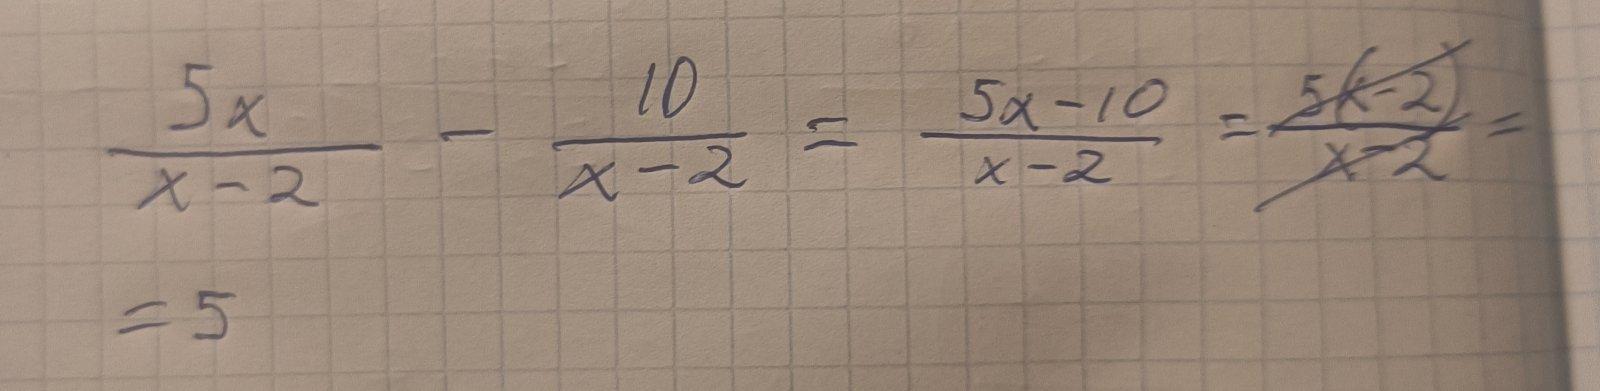 5x/(x-2) - 10/(x-2) = (5x-10)/(x-2) = 5(x-2)/(x-2) =
= 5